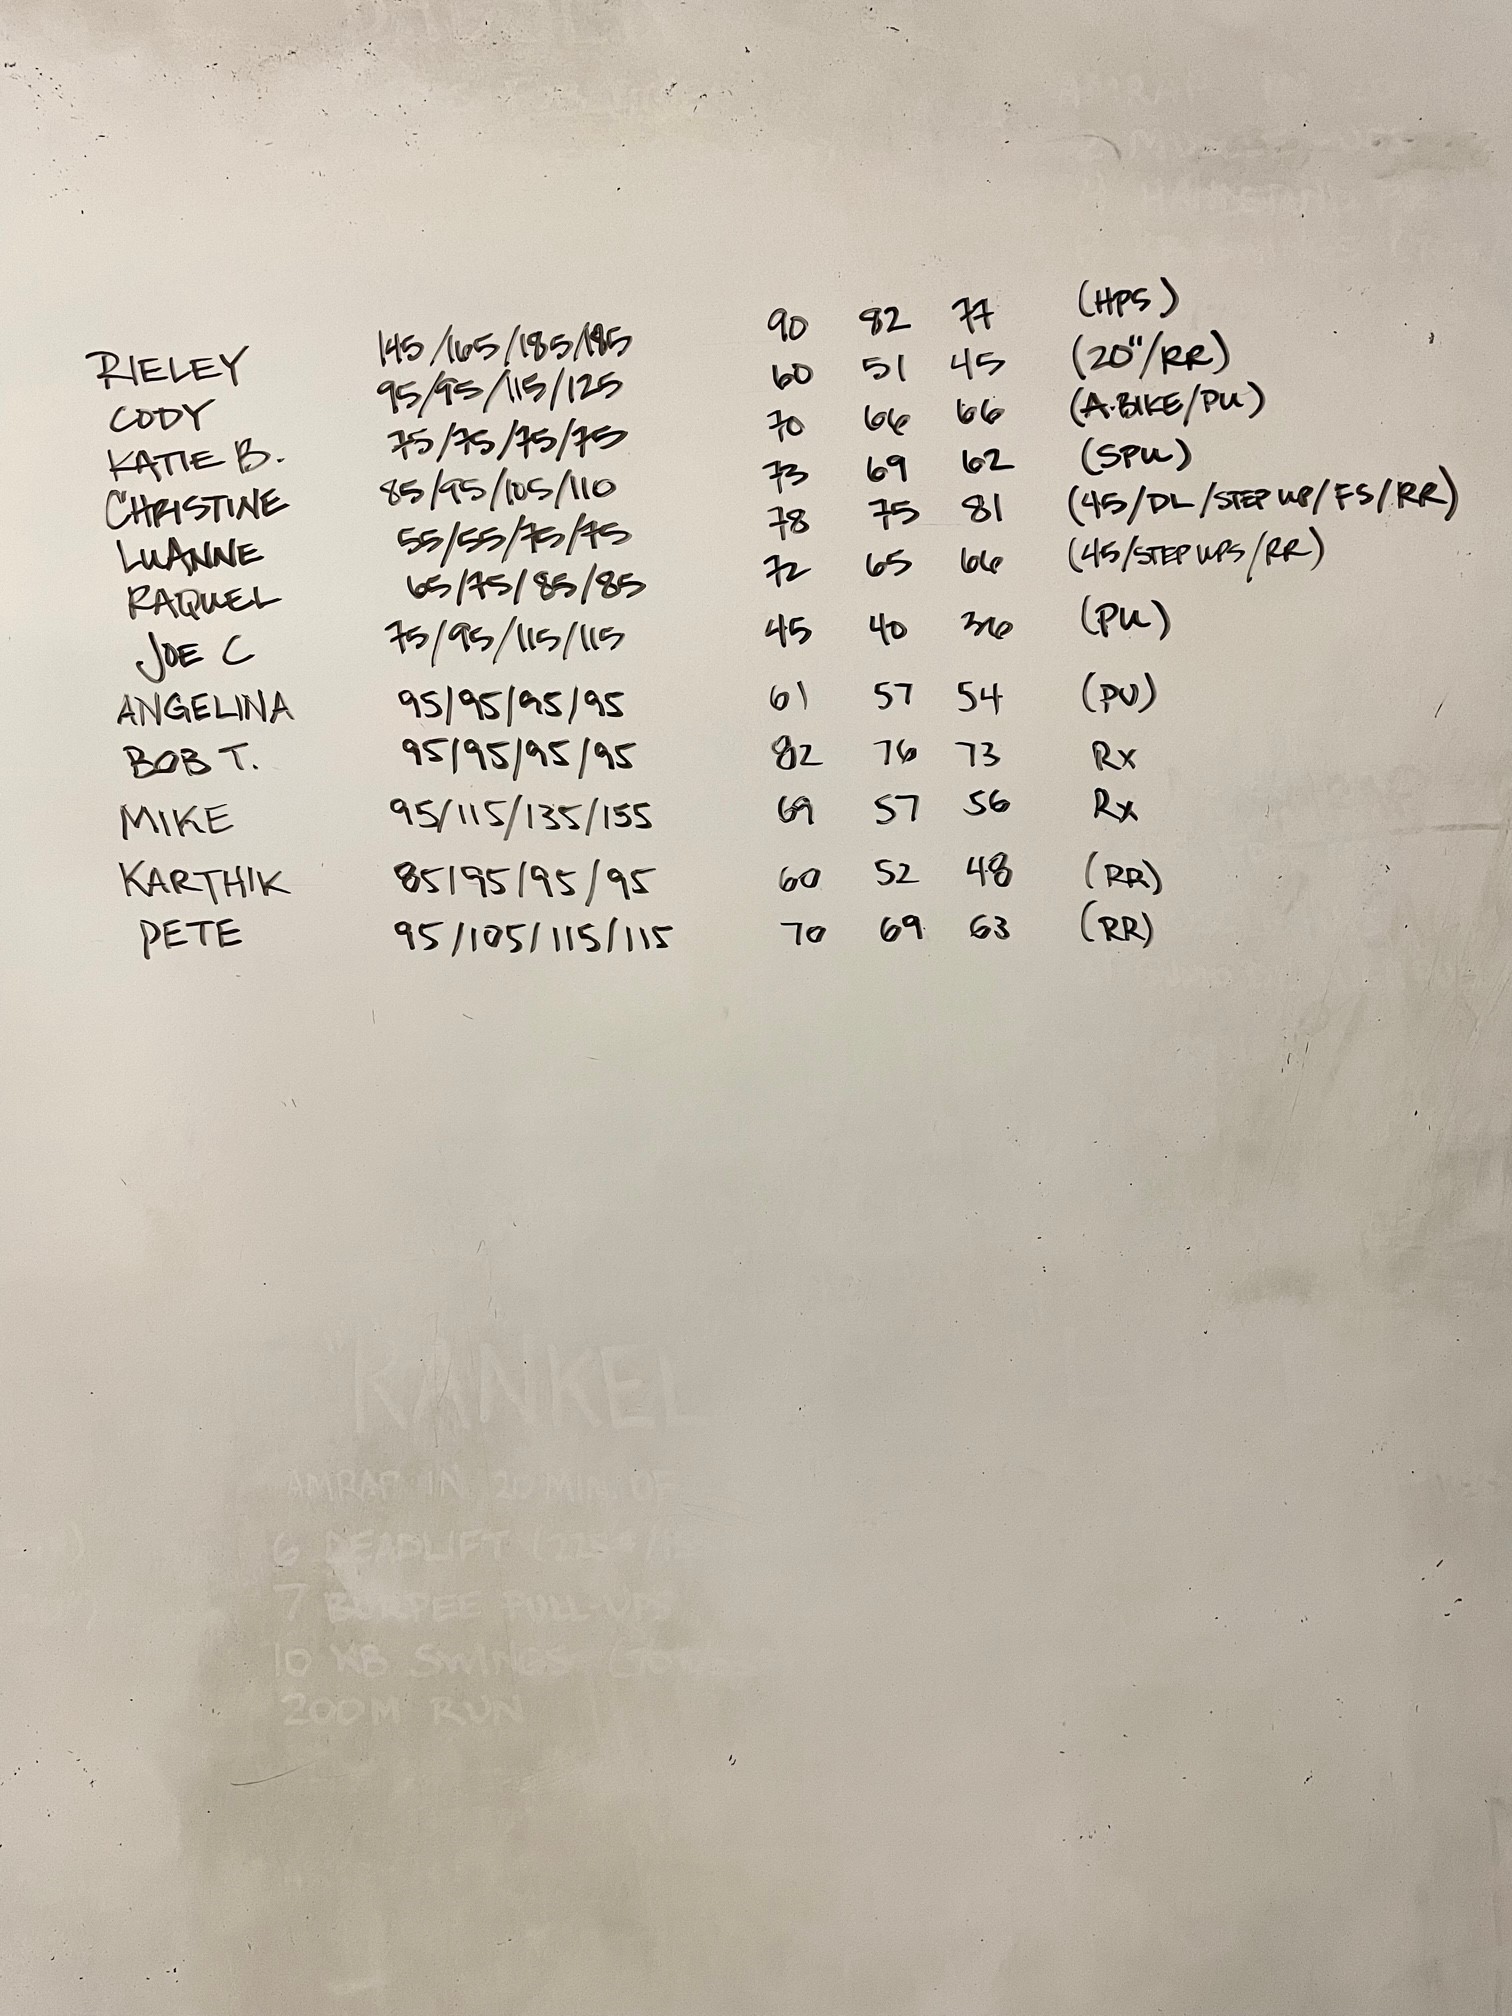 RIELEY 145/165/185/185 90 82 77 (HPS)
CODY 95/95/115/125 60 51 45 (20"/RR)
KATIE B. 75/75/75/75 70 66 66 (A.BIKE/PU)
CHRISTINE 85/95/105/110 73 69 62 (SPU)
LUANNE 55/55/75/75 78 75 81 (45/DL/STEP UP/FS/RR)
RAQUEL 65/75/85/85 72 65 66 (45/STEP UPS/RR)
JOE C 75/95/115/115 45 40 36 (PU)
ANGELINA 95/95/95/95 61 57 54 (PU)
BOB T. 95/95/95/95 82 76 73 Rx
MIKE 95/115/135/155 69 57 56 Rx
KARTHIK 85/95/95/95 60 52 48 (RR)
PETE 95/105/115/115 70 69 63 (RR)
"RANKEL
AMRAP IN 20 MIN. OF
6 DEADLIFT
7 BURPEE PULL-UPS
10 KB SWINGS
200M RUN